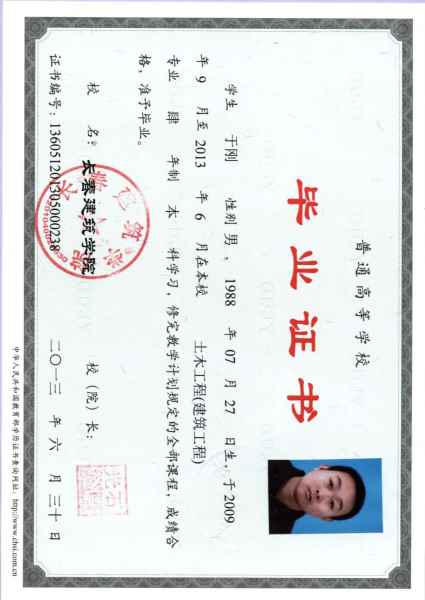 普通高等学校
毕业证书
学生 于刚 性别 男， 1988 年 07 月 27 日生，于 2009
年 9 月至 2013 年 6 月在本校 土木工程(建筑工程)
专业 肆 年制 本 科学习，修完教学计划规定的全部课程，成绩合
格，准予毕业。
校 名：长春建筑学院 校（院）长：
证书编号：136051201305000238 二〇一三 年 六 月 三十 日
中华人民共和国教育部学历证书查询网址：http://www.chsi.com.cn